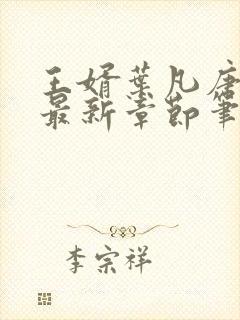 王婿叶凡唐
最新章节笔
李宗祥